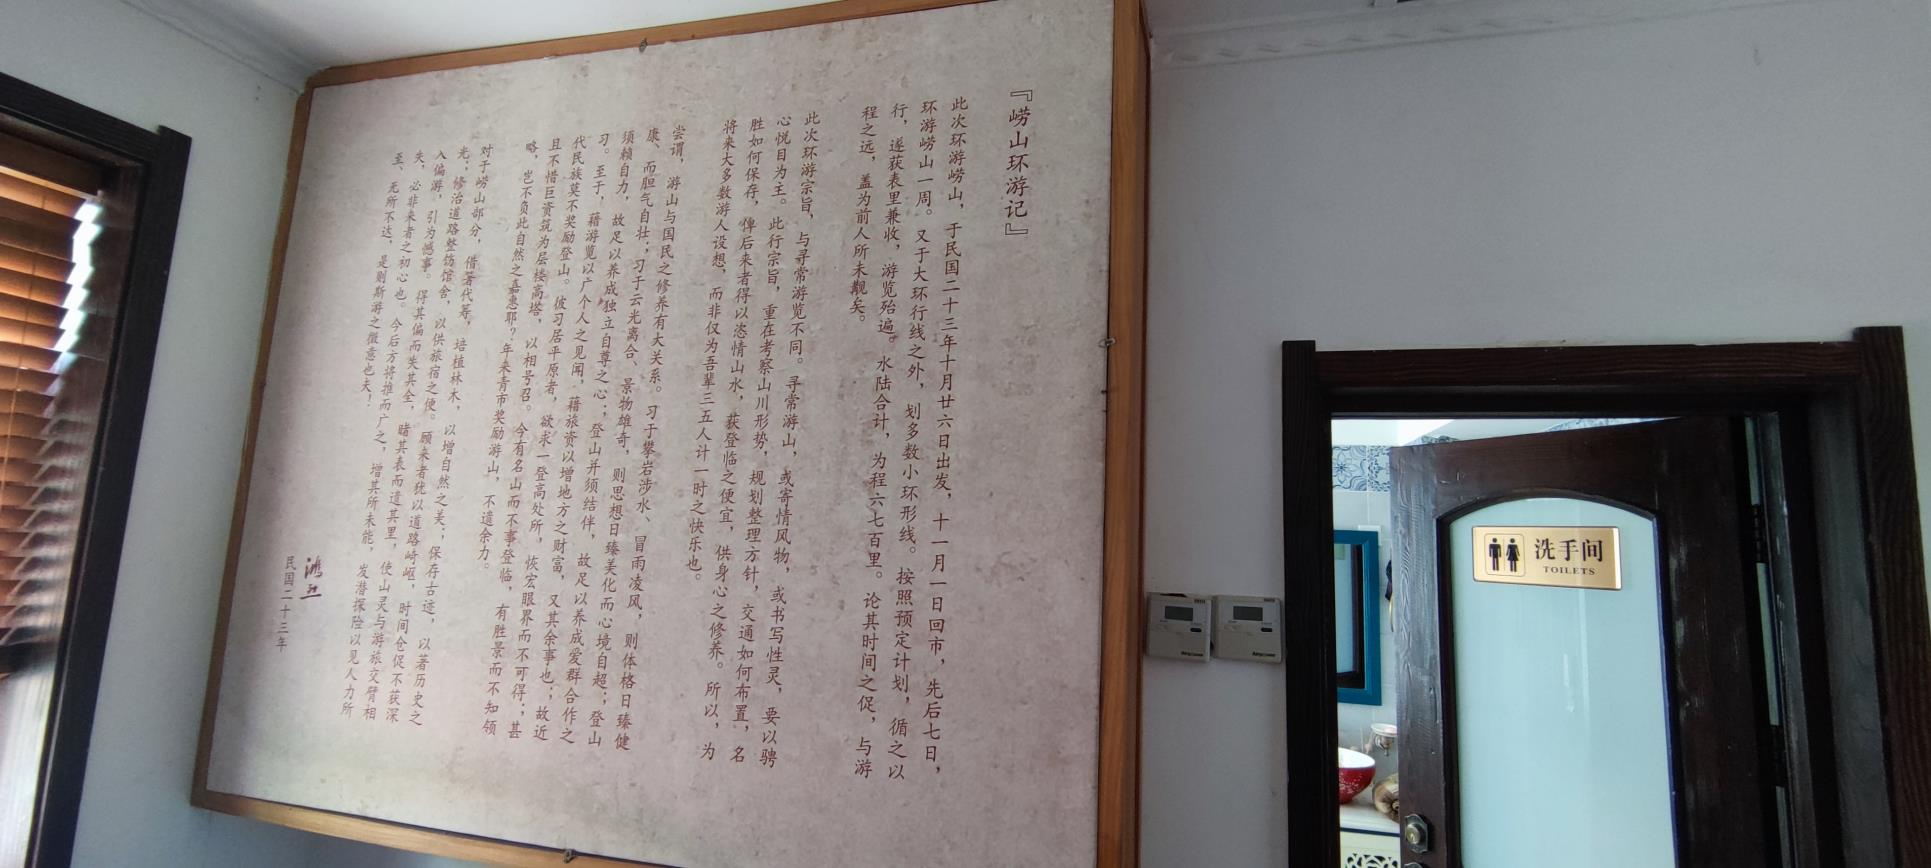 『崂山环游记』
此次环游崂山，于民国二十三年十月廿六日出发，十一月一日回市，先后七日，
环游崂山一周。又于大环行线之外，划多数小环形线。按照预定计划，循之以
行，遂获表里兼收，游览殆遍。水陆合计，为程六七百里。论其时间之促，与游
程之远，盖为前人所未觏矣。
此次环游宗旨，与寻常游览不同。寻常游山，或寄情风物，或书写性灵，要以骋
心悦目为主。此行宗旨，重在考察山川形势，规划整理方针，交通如何布置，名
胜如何保存，俾后来者得以恣情山水，获登临之便宜，供身心之修养。所以，为
将来大多数游人设想，而非仅为吾辈三五人计一时之快乐也。
尝谓，游山与国民之修养有大关系。习于攀岩涉水、冒雨凌风，则体格日臻健
康、而胆气自壮；习于云光离合、景物雄奇，则思想日臻美化而心境自超；登山
须赖自力，故足以养成独立自尊之心；登山并须结伴，故足以养成爱群合作之
习。至于，藉游览以广个人之见闻，藉旅资以增地方之财富，又其余事也；故近
代民族莫不奖励登山。彼习居平原者，欲求一登高处所，恢宏眼界而不可得；甚
且不惜巨资筑为层楼高塔，以相号召。今有名山而不事登临，有胜景而不知领
略，岂不负此自然之嘉惠耶？年来青市奖励游山，不遗余力。
对于崂山部分，借箸代筹，培植林木，以增自然之美；保存古迹，以著历史之
光；修治道路整饬馆舍，以供旅宿之便。顾来者犹以道路崎岖，时间仓促不获深
入偏游，引为憾事。得其偏而失其全，睹其表而遗其里，使山灵与游旅交臂相
失，必非来者之初心也。今后方将推而广之，增其所未能，发潜探险以见人力所
至、无所不达，是则斯游之微意也夫！
鸿烈
民国二十三年
洗手间
TOILETS